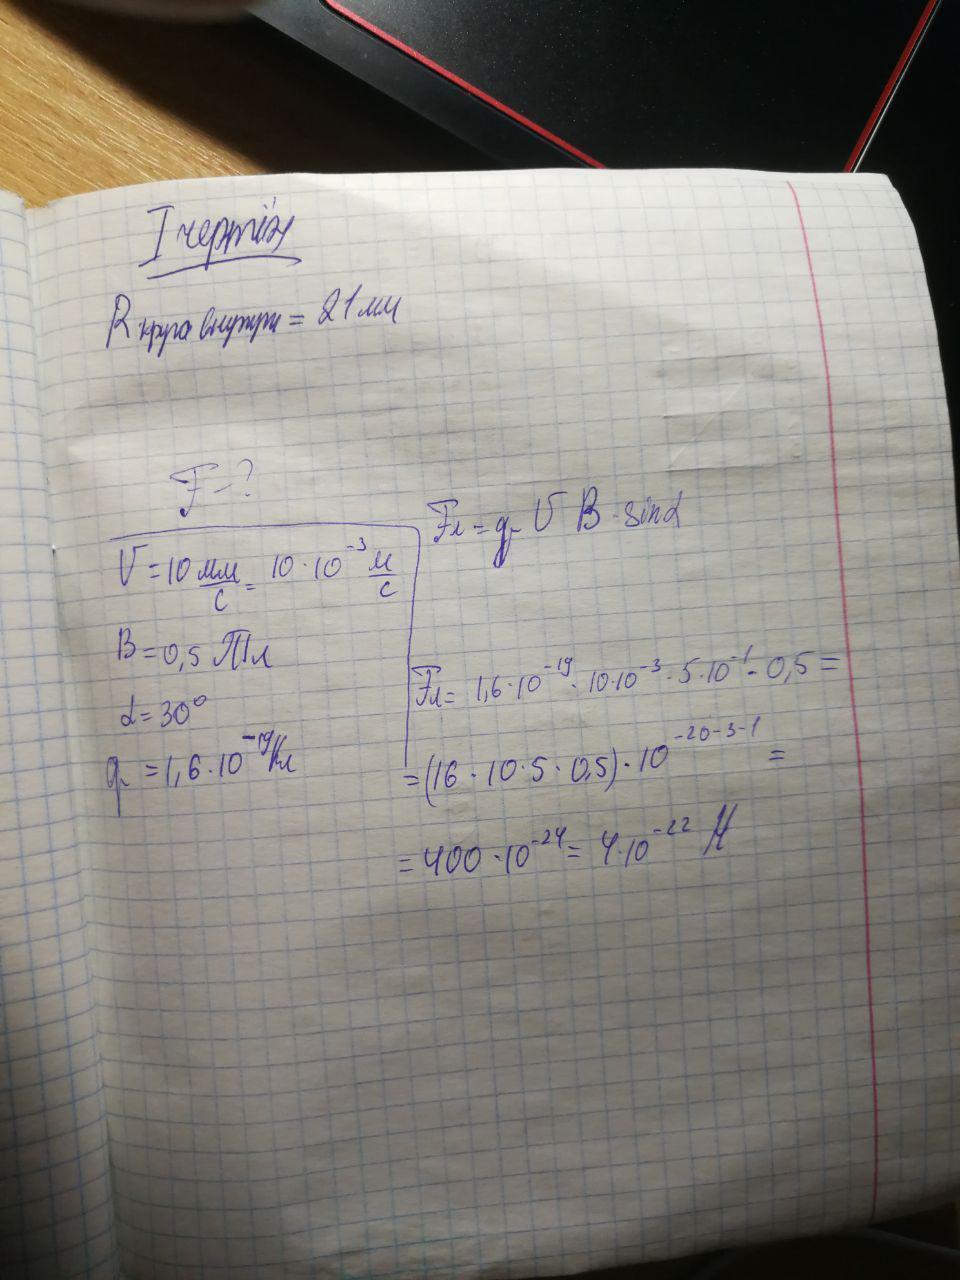 I чертіж
R круга внутри = 21 мм
F - ?
Fл = q υ B · sinα
υ = 10 мм/с = 10 · 10⁻³ м/с
B = 0,5 Тл
α = 30°
q = 1,6 · 10⁻¹⁹ Кл
Fл = 1,6 · 10⁻¹⁹ · 10 · 10⁻³ · 5 · 10⁻¹ · 0,5 =
= (16 · 10 · 5 · 0,5) · 10⁻²⁰⁻³⁻¹ =
= 400 · 10⁻²⁴ = 4 · 10⁻²² Н